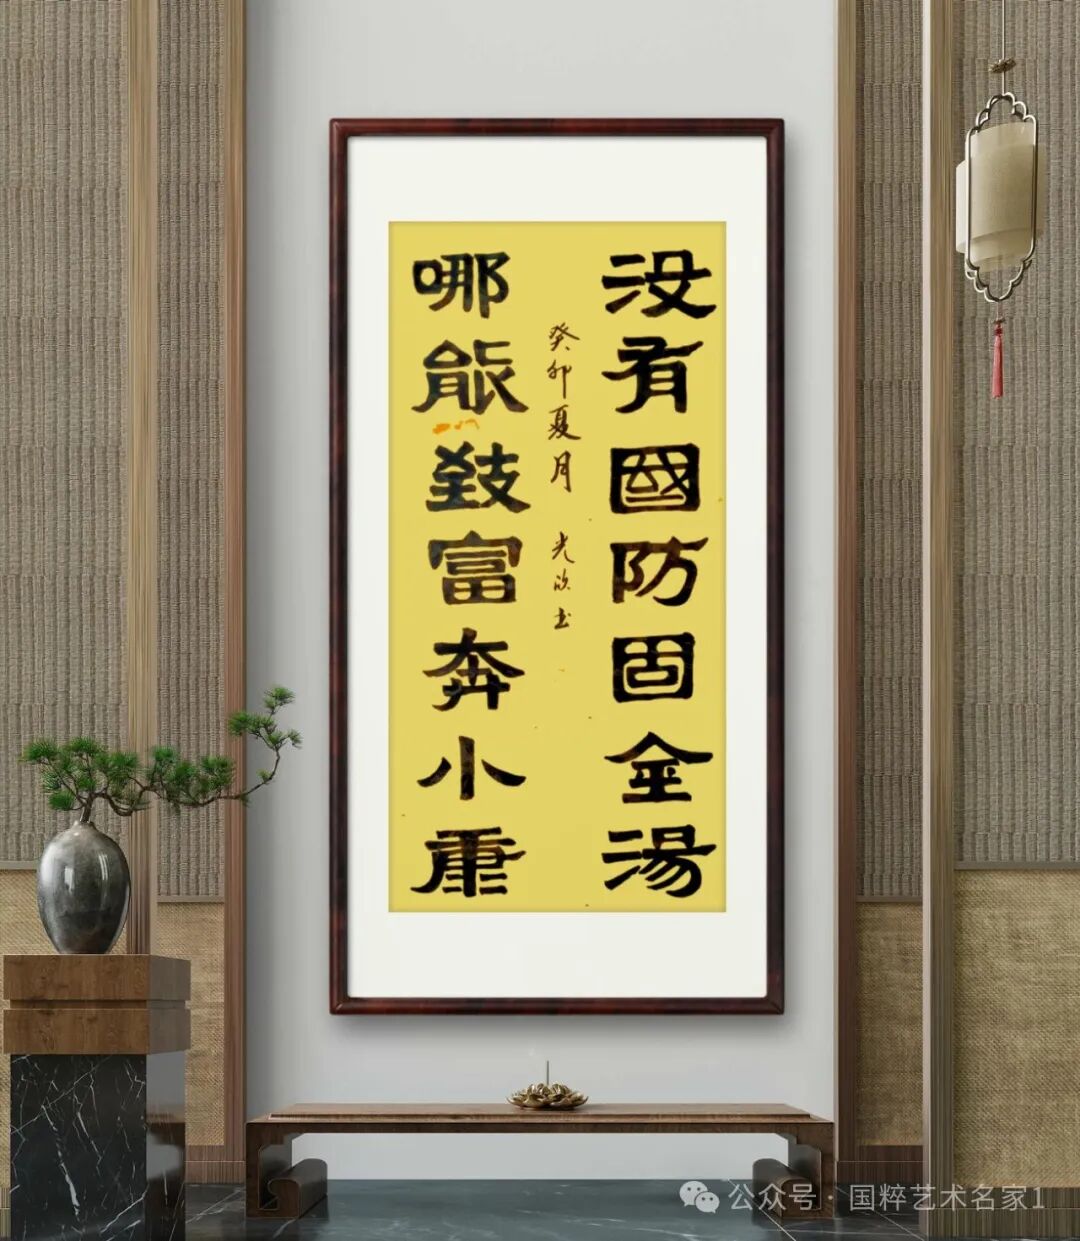 没有國防固金湯
癸卯夏月 光欣书
哪能致富奔小康
公众号·国粹艺术名家1